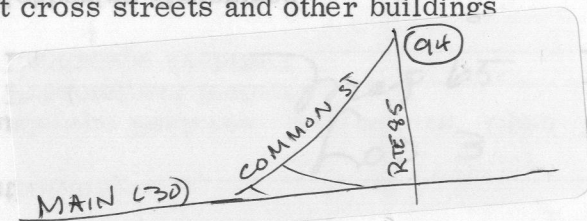 t cross streets and other buildings
94
COMMON ST
RTE 85
MAIN (30)